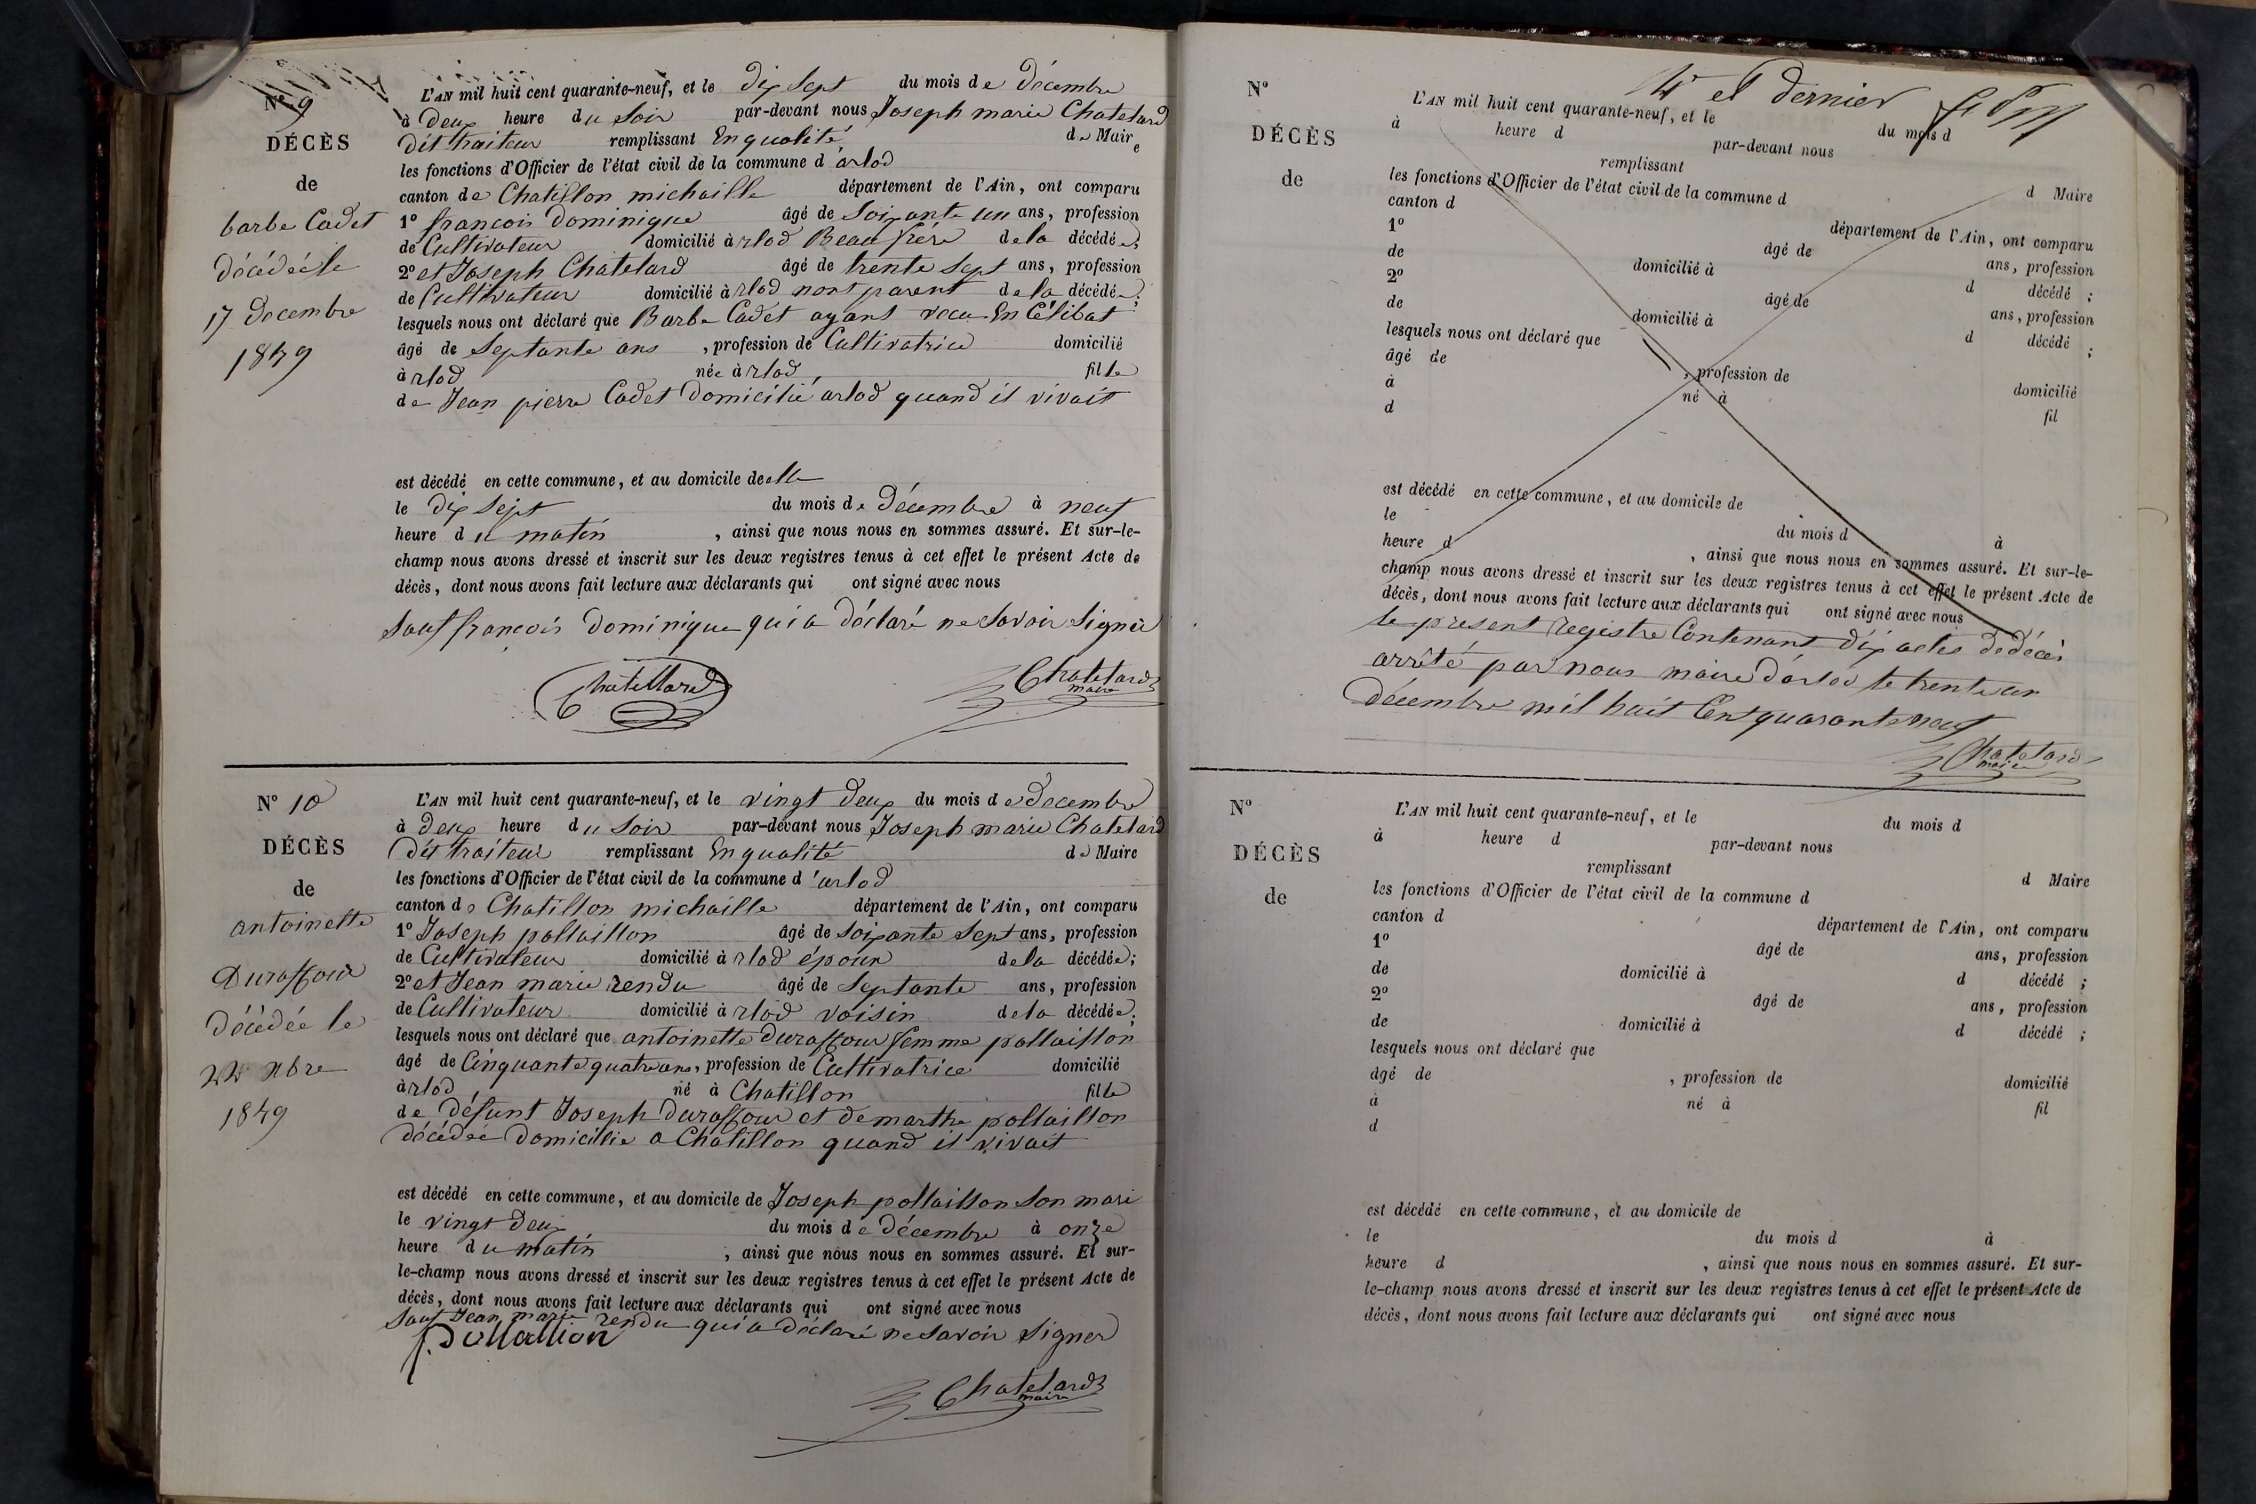 N° 9
DÉCÈS
de
barbe Cadet
décédée le
17 decembre
1849
L'AN mil huit cent quarante-neuf, et le dix Sept du mois de décembre
à deux heure du Soir par-devant nous Joseph marie Chatelard
dit traiteur remplissant En qualité de Maire
les fonctions d'Officier de l'état civil de la commune d'arlod
canton de Chatillon michaille département de l'Ain, ont comparu
1° francois dominique âgé de Soixante un ans, profession
de Cultivateur domicilié à rlod Beau frére de la décédée;
2° et Joseph Chatelard âgé de trente Sept ans, profession
de Cultivateur domicilié à rlod nont parent de la décédée;
lesquels nous ont déclaré que Barbe Cadet ayant vecu En Célibat
âgé de Septante ans, profession de Cultivatrice domicilié
à rlod née à rlod, fille
de Jean pierre Cadet domicilié arlod quand il vivait
est décédé en cette commune, et au domicile de elle
le dix Sept du mois de Décembre à neuf
heure du matin, ainsi que nous nous en sommes assuré. Et sur-le-
champ nous avons dressé et inscrit sur les deux registres tenus à cet effet le présent Acte de
décès, dont nous avons fait lecture aux déclarants qui ont signé avec nous
Sauf francois Dominique qui a déclaré ne Savoir Signer
Chatellard
Chatelard
maire
N° 10
DÉCÈS
de
antoinette
Duraffour
décédée le
22 xbre
1849
L'AN mil huit cent quarante-neuf, et le vingt deux du mois de decembre
à deux heure du Soir par-devant nous Joseph marie Chatelard
dit traiteur remplissant En qualité de Maire
les fonctions d'Officier de l'état civil de la commune d'arlod
canton de Chatillon michaille département de l'Ain, ont comparu
1° Joseph pollaillon âgé de Soixante Sept ans, profession
de Cultivateur domicilié à rlod époux de la décédée;
2° et Jean marie rendu âgé de Septante ans, profession
de Cultivateur domicilié à rlod voisin de la décédée;
lesquels nous ont déclaré que antoinette duraffour femme pollaillon
âgé de Cinquante quatre ans, profession de Cultivatrice domicilié
à rlod, né à Chatillon fille
de défunt Joseph duraffour et de marthe pollaillon
décédée domicilié a Chatillon quand il vivait
est décédé en cette commune, et au domicile de Joseph pollaillon Son mari
le vingt deux du mois de décembre à onze
heure du matin, ainsi que nous nous en sommes assuré. Et sur-
le-champ nous avons dressé et inscrit sur les deux registres tenus à cet effet le présent Acte de
décès, dont nous avons fait lecture aux déclarants qui ont signé avec nous
Sauf Jean marie rendu qui a déclaré ne Savoir Signer
j. pollallion
Chatelard
maire
4e et dernier
N°
DÉCÈS
de
L'AN mil huit cent quarante-neuf, et le du mois d
à heure d par-devant nous
remplissant d Maire
les fonctions d'Officier de l'état civil de la commune d
canton d département de l'Ain, ont comparu
1° âgé de ans, profession
de domicilié à d décédé ;
2° âgé de ans, profession
de domicilié à d décédé ;
lesquels nous ont déclaré que
âgé de , profession de domicilié
à né à fil
d
est décédé en cette commune, et au domicile de
le du mois d à
heure d , ainsi que nous nous en sommes assuré. Et sur-le-
champ nous avons dressé et inscrit sur les deux registres tenus à cet effet le présent Acte de
décès, dont nous avons fait lecture aux déclarants qui ont signé avec nous
le present Registre Contenant dix actes de décès
arrêté par nous maire d'arlod le trente un
décembre mil huit Cent quarante neuf
Chatelard
maire
N°
DÉCÈS
de
L'AN mil huit cent quarante-neuf, et le du mois d
à heure d par-devant nous
remplissant d Maire
les fonctions d'Officier de l'état civil de la commune d
canton d département de l'Ain, ont comparu
1° âgé de ans, profession
de domicilié à d décédé ;
2° âgé de ans, profession
de domicilié à d décédé ;
lesquels nous ont déclaré que
âgé de , profession de domicilié
à né à fil
d
est décédé en cette commune, et au domicile de
le du mois d à
heure d , ainsi que nous nous en sommes assuré. Et sur-
le-champ nous avons dressé et inscrit sur les deux registres tenus à cet effet le présent Acte de
décès, dont nous avons fait lecture aux déclarants qui ont signé avec nous